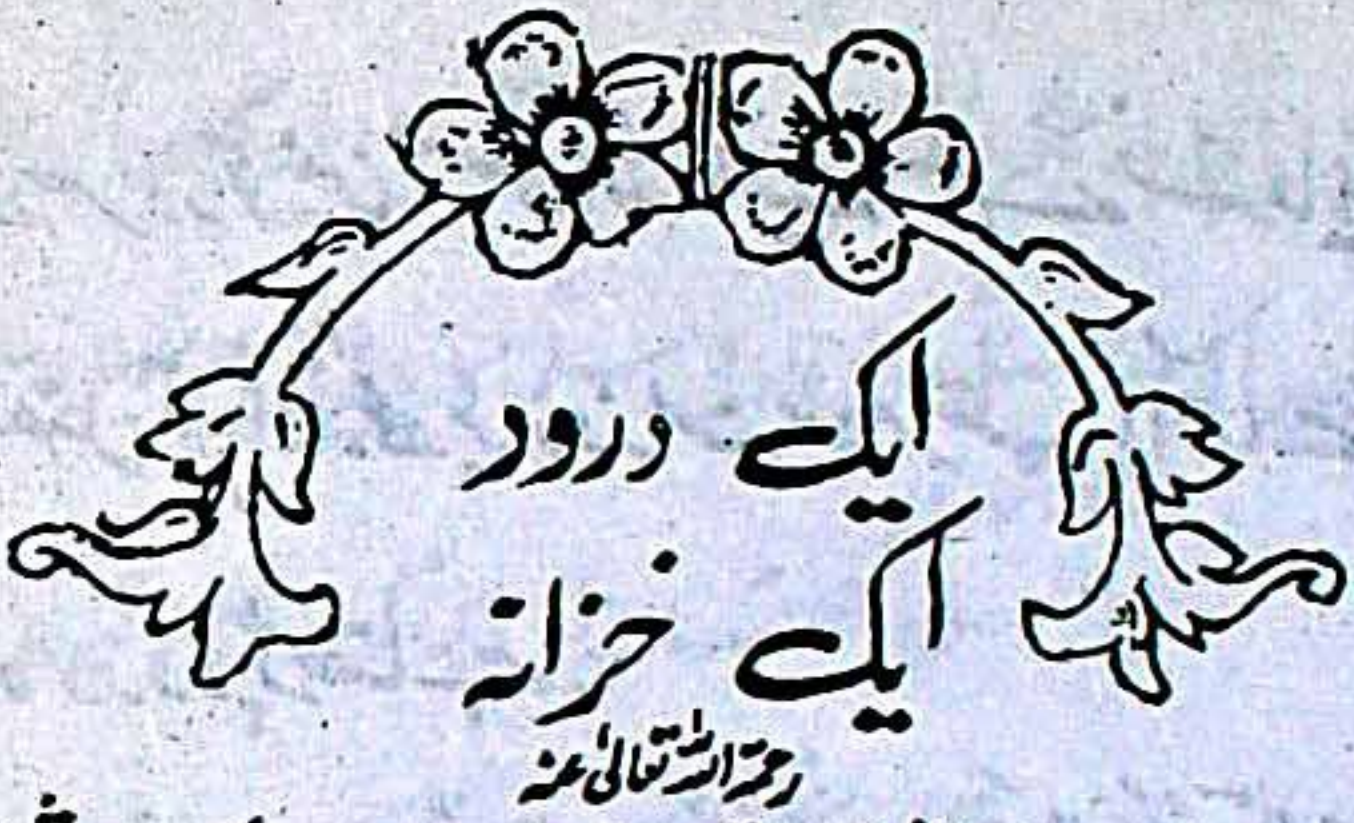 ایک درود
ایک خزانہ
رحمۃ اللہ تعالیٰ عنہ